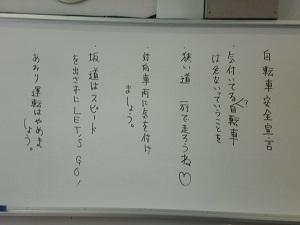 自転車安全宣言
・気付いてる？自転車
は危ないっていうことを
・狭い道 一列で走ろうね♡
・対向車両に気を付け
ましょう。
・坂道はスピード
を出さずにLET'S GO!
あおり運転はやめま
しょう。